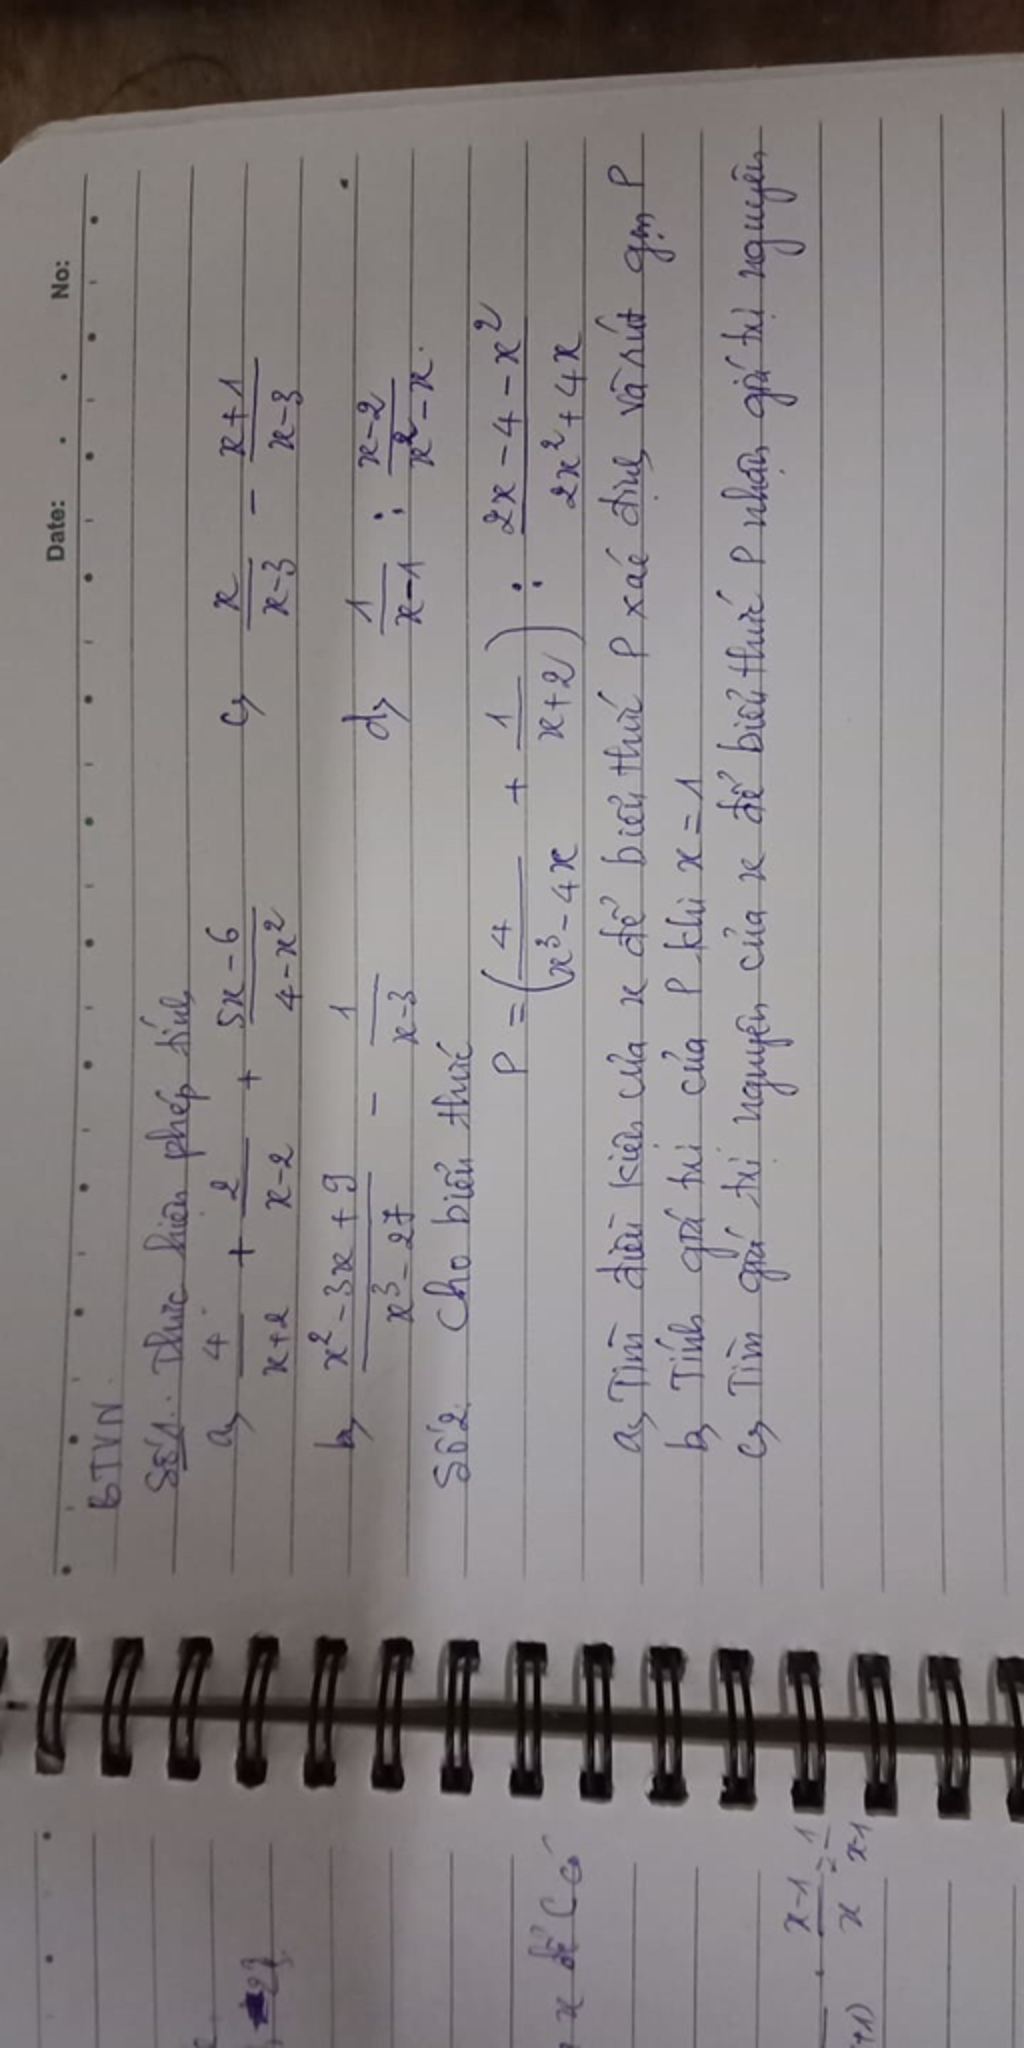 Date: No:
BTVN
Số 1. Thực hiện phép tính
a, 4/(x+2) + 2/(x-2) + (5x-6)/(4-x²) c, x/(x-3) - (x+1)/(x-3)
b, (x²-3x+9)/(x³-27) - 1/(x-3) d, 1/(x-1) : (x-2)/(x²-x).
Số 2. Cho biểu thức
P = (4/(x³-4x) + 1/(x+2)) : (2x-4-x²)/(2x²+4x)
a, Tìm điều kiện của x để biểu thức P xác định và rút gọn P
b, Tính giá trị của P khi x = 1
c, Tìm giá trị nguyên của x để biểu thức P nhận giá trị nguyên
x để C có
x-1
x
1
x-1
+1)